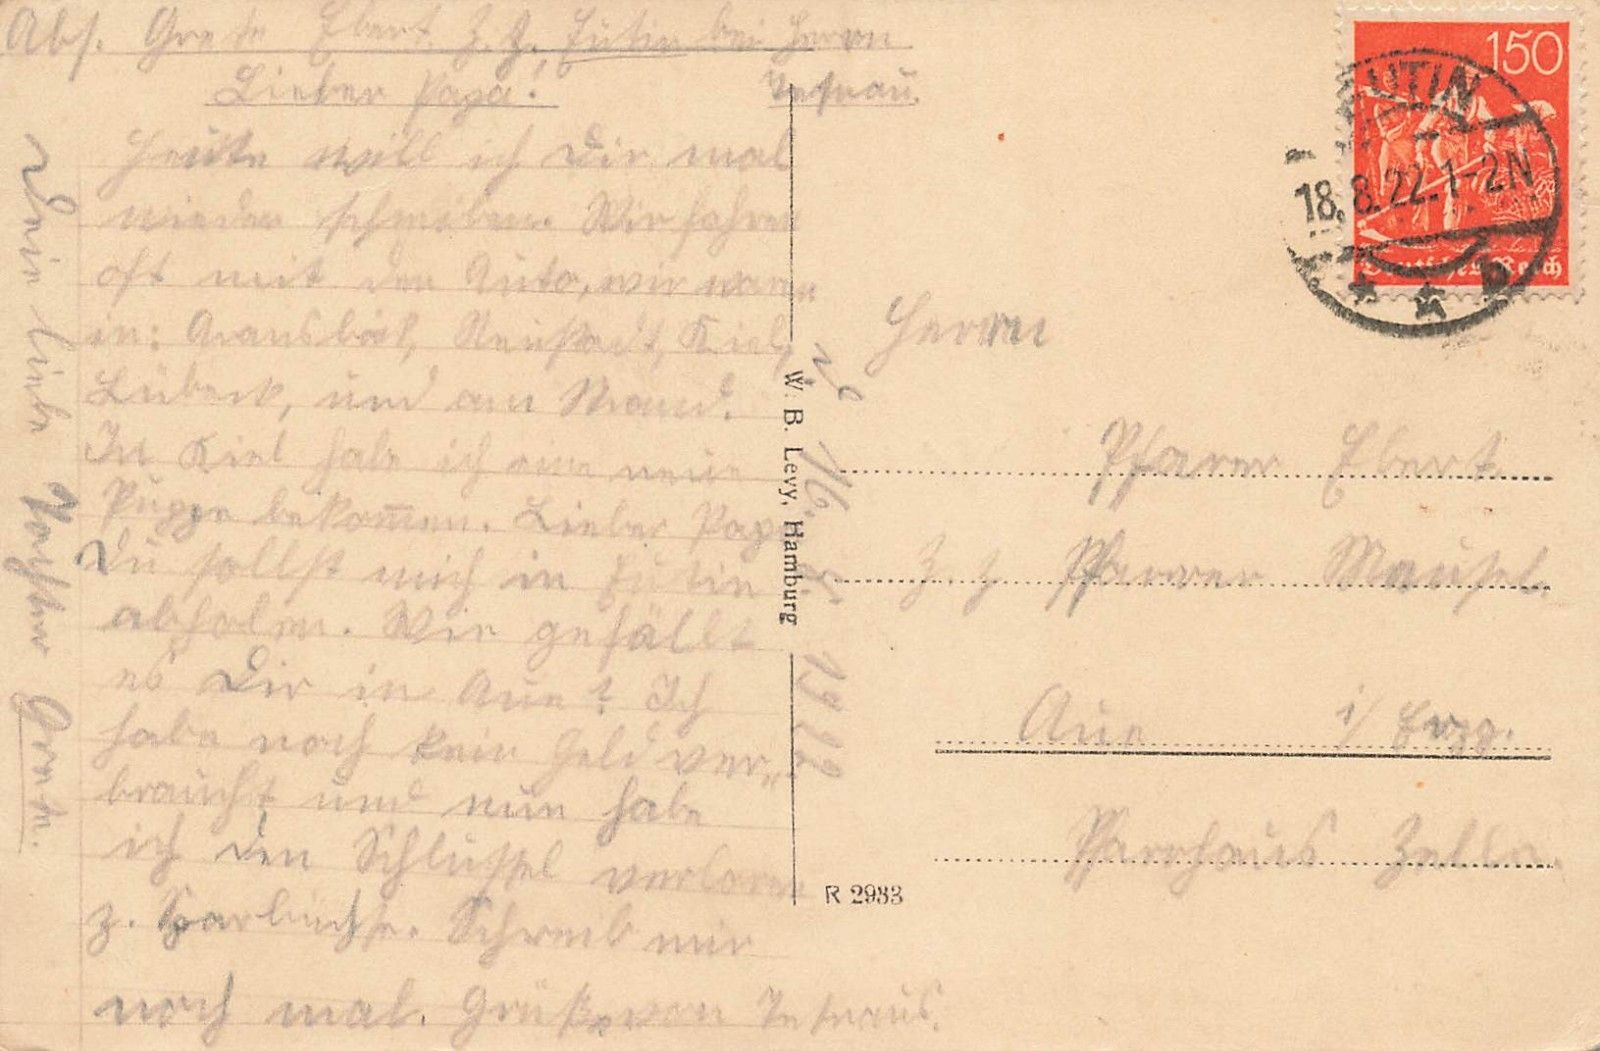 Abs. Grete Ebert z. Z. Eutin bei Herrn
Lieber Papa!
Heute will ich Dir mal
wieder schreiben. Wir fahren
oft mit den Auto, wir waren
in: Neustadt, Kiel,
Lübeck, und am Strand.
In Kiel habe ich eine neue
Puppe bekom̅en. Lieber Papa
Du sollst mich in Eutin
abholen. Wie gefällt
es Dir in Aue? Ich
habe noch kein Geld ver-
braucht und nun habe
ich den Schlüssel verloren
z. Sparbüchse. Schreib mir
noch mal. Grüße von
Deine liebe Tochter Grete.
W. B. Levy, Hamburg
R 2933
16. 8. 1922
150
Deutsches Reich
EUTIN
18.8.22.1-2N
Herrn
Pfarrer Ebert
z. Z Pfarrer
Aue i/ Erzg.
Pfarrhaus Zelle.